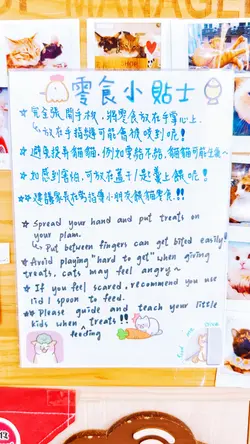 零食小貼士
☆完全張開手放, 將零食放在手掌心上.
↳放在手指縫可能會被咬到呢!
☆避免玩弄貓貓, 例如要給不給, 貓貓可能生氣~
☆如感到害怕, 可放在蓋子/是羹上餵~
☆建議家長在旁指導小朋友餵食零食!!
☆ Spread your hand and put treats on
your plam.
↳ Put between fingers can get bited easily!
☆Avoid playing "hard to get" when giving
treats, cats may feel angry~
☆ If you feel scared, recommend you use
lid / spoon to feed.
☆ Please guide and teach your little
kids when treats!!
feeding